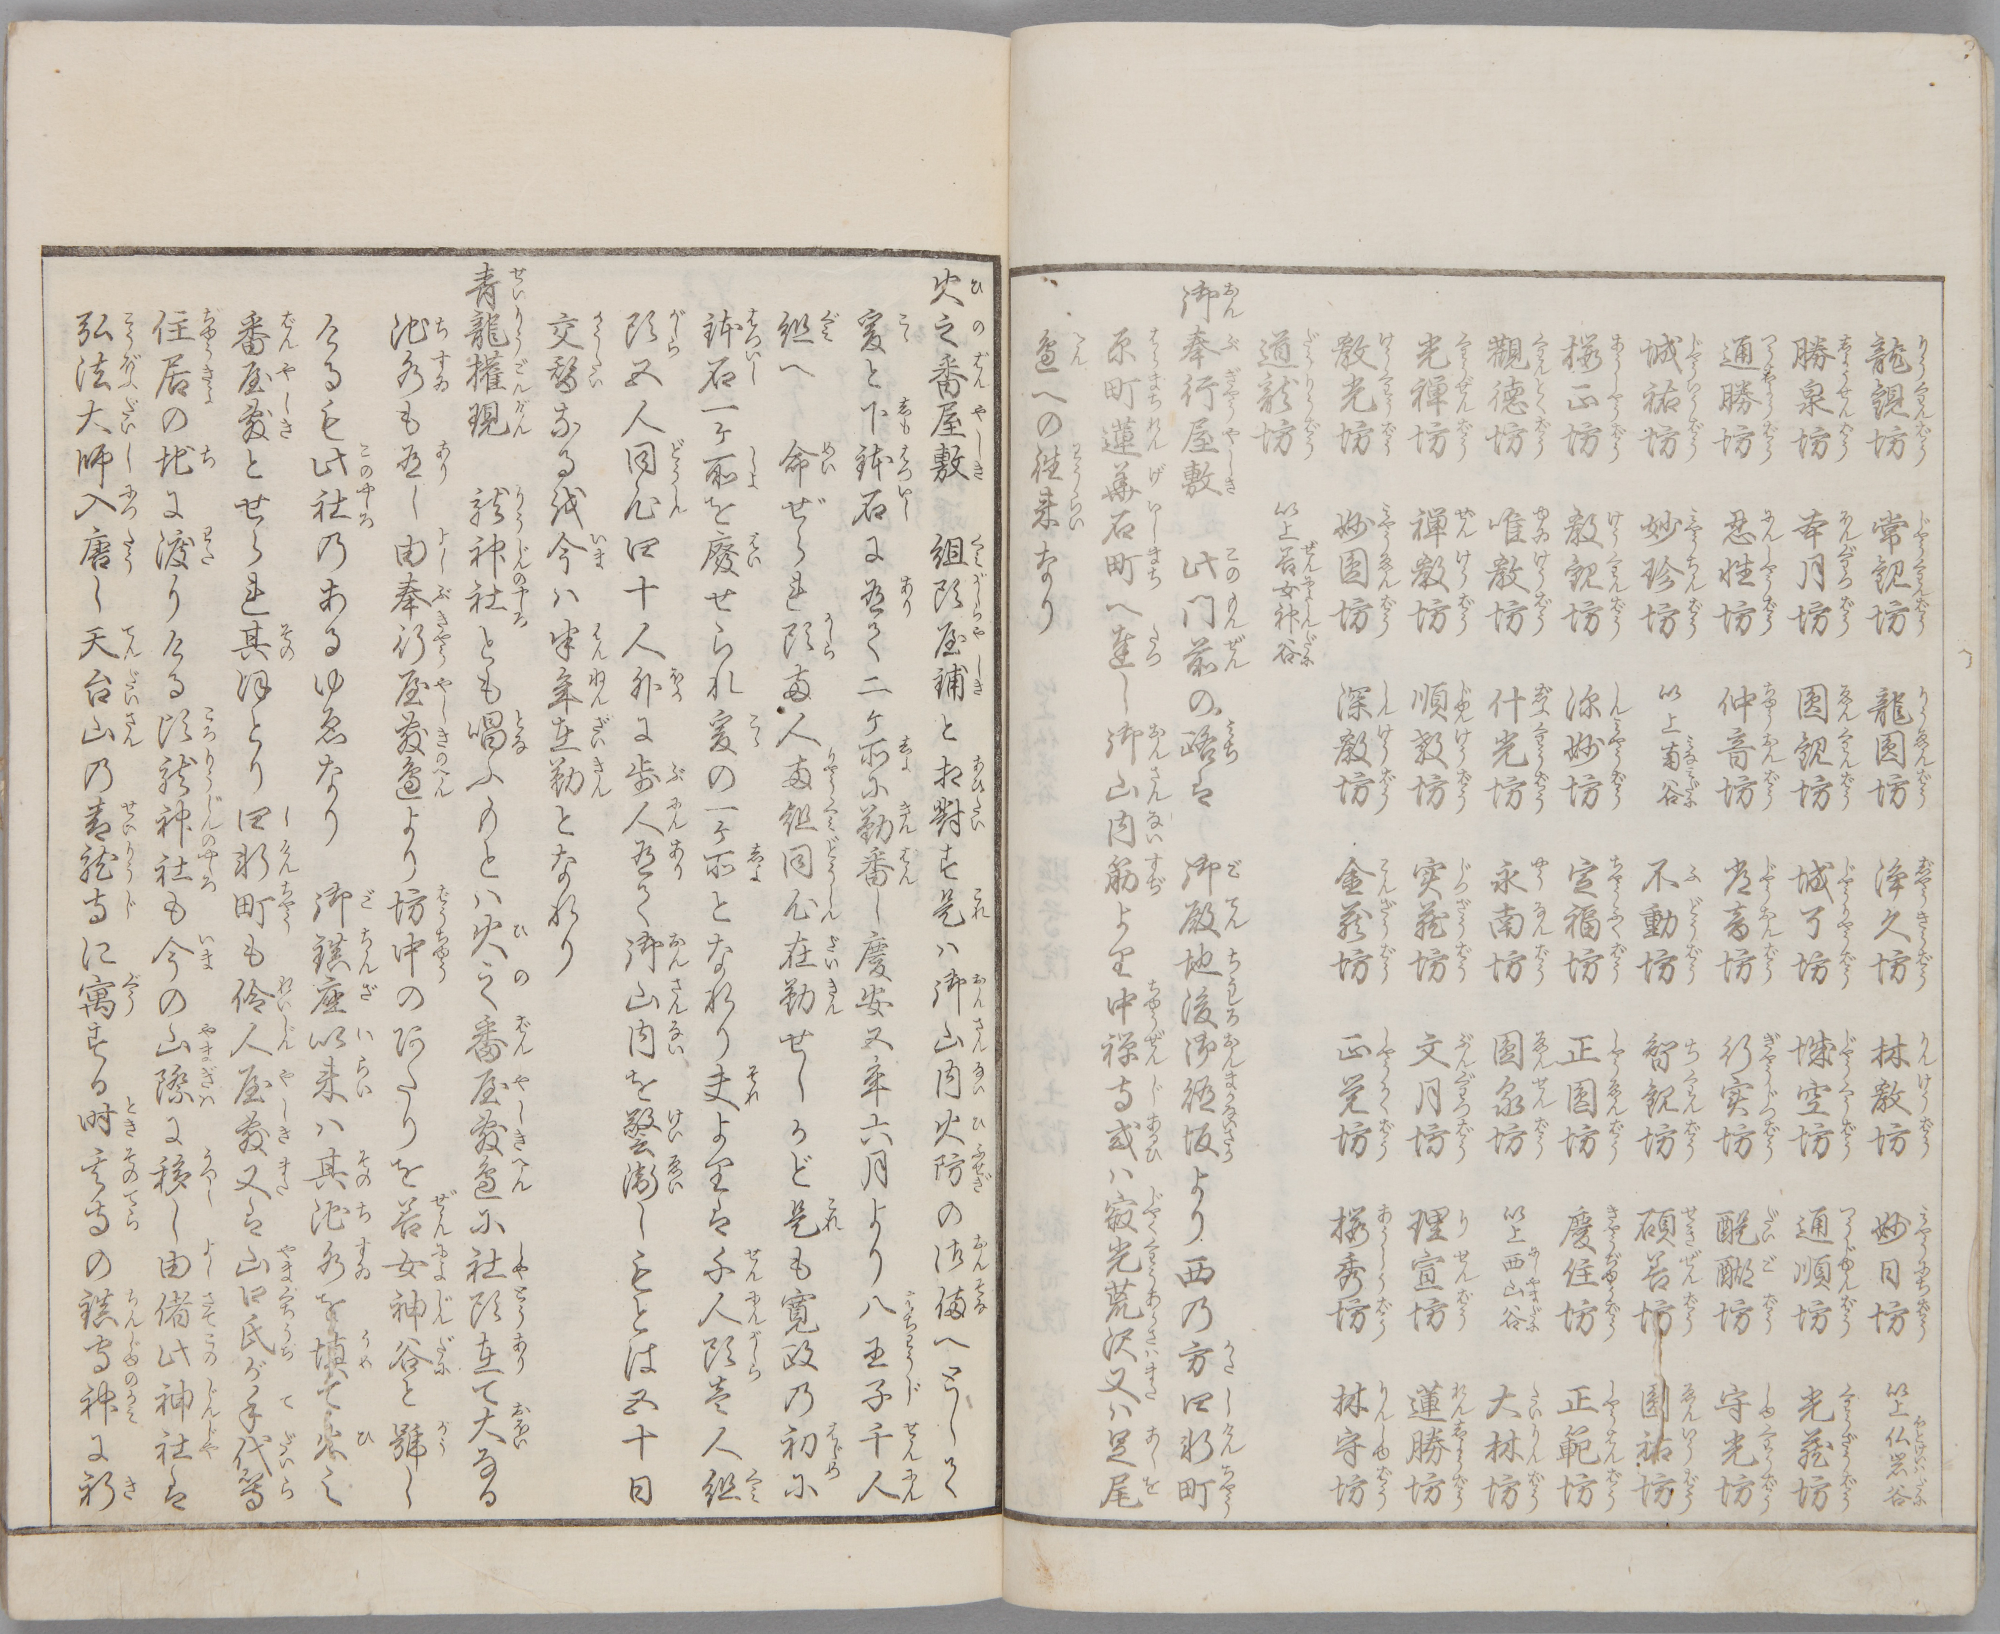 龍観坊 常観坊 龍圓坊 浄久坊 林教坊 妙日坊 以上仏岩谷
勝泉坊 本月坊 圓観坊 城了坊 城空坊 通順坊 光蔵坊
通勝坊 忍性坊 仲音坊 常音坊 行実坊 醍醐坊 守光坊
城祐坊 妙珍坊 以上南谷 不動坊 智観坊 碩善坊 圓祐坊
桜正坊 教観坊 深妙坊 定福坊 正圓坊 慶住坊 正範坊
觀徳坊 唯教坊 什光坊 永南坊 圓泉坊 以上西山谷 大林坊
光禅坊 禅教坊 順教坊 実蔵坊 文月坊 理宣坊 蓮勝坊
教光坊 妙圓坊 深教坊 金蔵坊 正覚坊 桜秀坊 林守坊
道龍坊 以上善女神谷
御奉行屋敷 此門前の路は 御殿地後御𛂞坂より西の方四軒町
原町蓮華石町へ達し御山内筋より中禅寺或ハ寂光荒沢又ハ足尾
邉への往来なり
火之番屋敷 組頭屋舗と相對す是ハ御山内火防の御備へとして
爰と下鉢石に有て二ケ所に勤番し慶安五年六月より八王子千人
組へ 命ぜられ頭両人両組同心在勤せしかど是も寛政の初に
鉢石一ケ所を廢せられ爰の一ケ所となれり夫よりは千人頭壱人組
頭五人同心四十人外に歩人有て御山内を警衛しもとは五十日
交替なる越今ハ半年在勤となれり
青龍權現 龍神社とも唱ふもとハ火之番屋敷邉に社頭在て大なる
池水も有し由奉行屋敷邉より坊中のあたりを善女神谷と號し
けるも此社のあるゆゑなり 御鎮座以来ハ其池水を填て火之
番屋敷とせられ其ほとり四軒町も伶人屋敷又は山口氏が手代等
住居の地に渡りける頃龍神社も今の山際に移し由偖此神社は
弘法大師入唐し天台山の青龍寺に寓する時其寺の鎮守神に祈